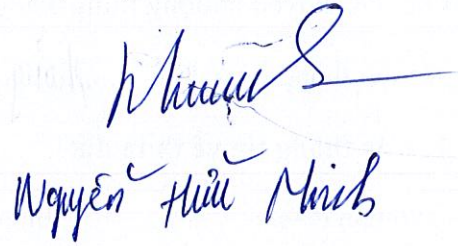 Nguyễn Hữu Minh